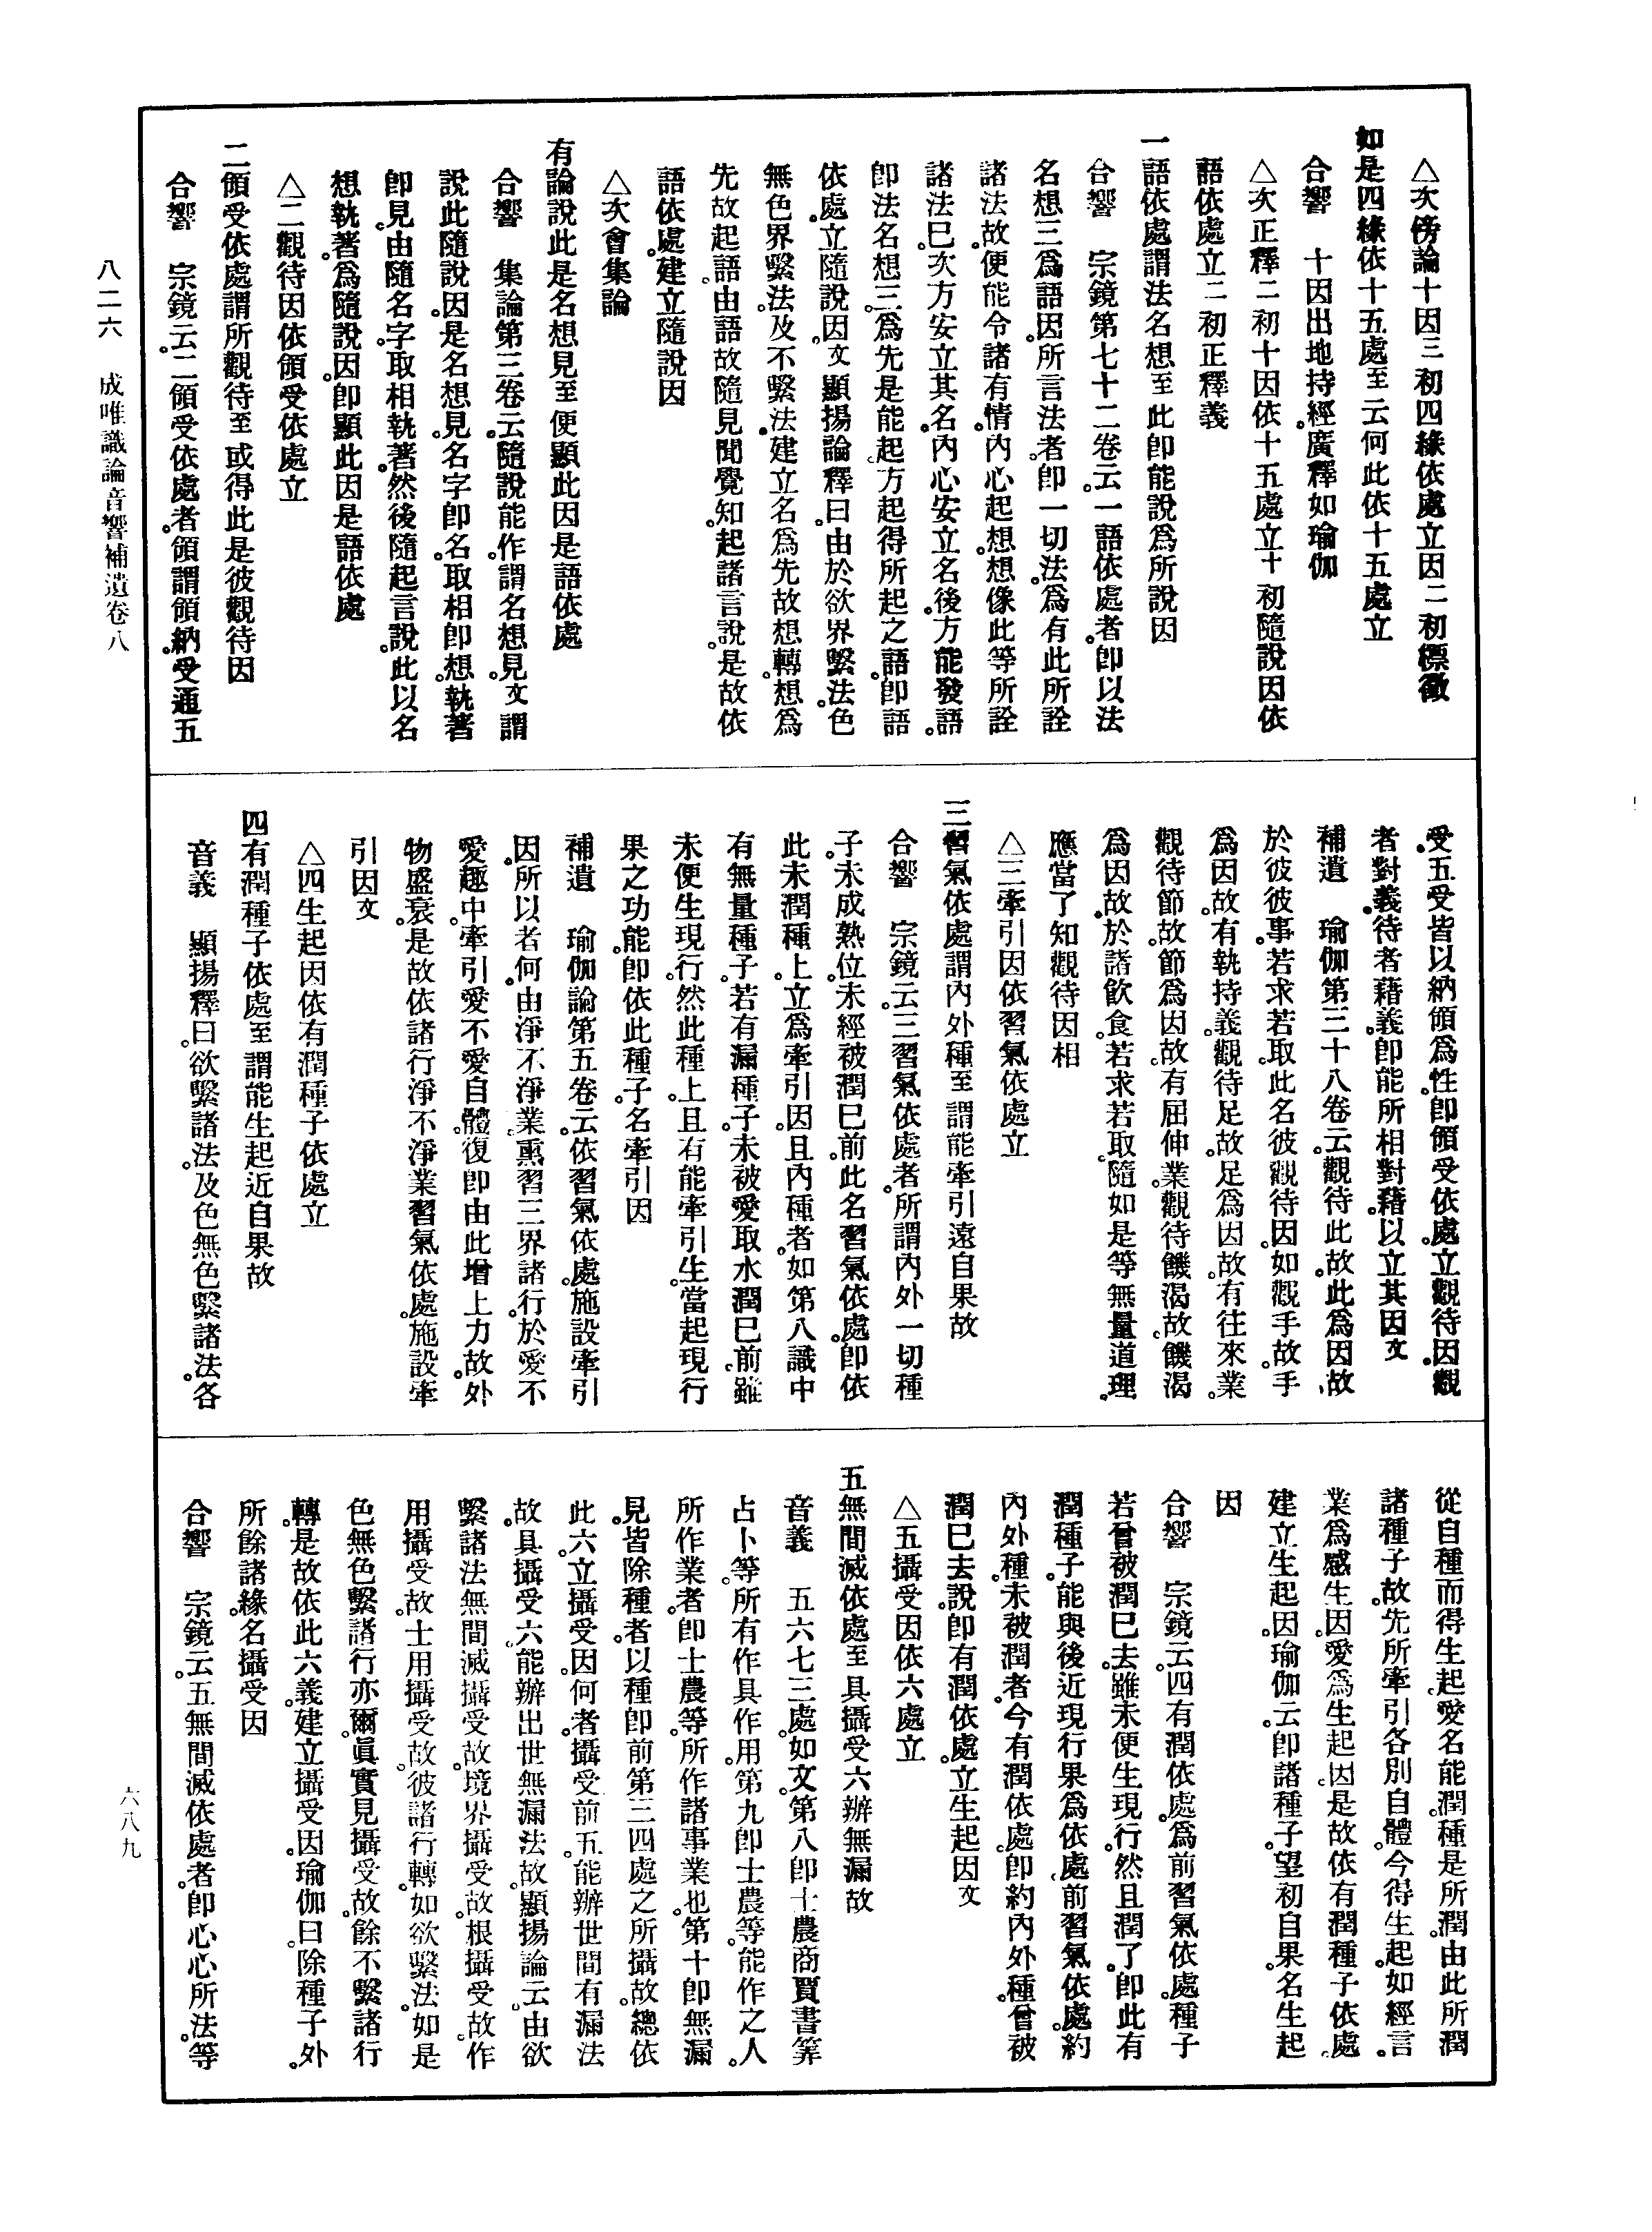 △次傍論十因三初四緣依處立因二初標徵
如是四緣依十五處至云何此依十五處立
合響　十因出地持經。廣釋如瑜伽
△次正釋二初十因依十五處立十初隨說因依
語依處立二初正釋義
一語依處謂法名想至此卽能說爲所說因
合響　宗鏡第七十二卷云。一語依處者。卽以法
名想三爲語因。所言法者。卽一切法。爲有此所詮
諸法故。便能令諸有情。內心起想。想像此等所詮
諸法已。次方安立其名。內心安立名後。方能發語。
卽法名想三。爲先是能起。方起得所起之語。卽語
依處。立隨說因文顯揚論釋曰。由於欲界繫法。色
無色界繫法。及不繫法。建立名爲先故想轉。想爲
先故起語。由語故隨見聞覺知。起諸言說。是故依
語依處。建立隨說因
△次會集論
有論說此是名想見至便顯此因是語依處
合響　集論第三卷云。隨說能作。謂名想見。文謂
說此隨說因。是名想見。名字卽名。取相卽想。執著
卽見。由隨名字。取相執著。然後隨起言說。此以名
想執著。爲隨說因。卽顯此因是語依處
△二觀待因依領受依處立
二領受依處謂所觀待至或得此是彼觀待因
合響　宗鏡云。二領受依處者。領謂領納。受通五
受。五受皆以納領爲性。卽領受依處。立觀待因。觀
者對義。待者藉義。卽能所相對。藉以立其因文
補遺　瑜伽第三十八卷云。觀待此故。此爲因故。
於彼彼事。若求若取。此名彼觀待因。如觀手故。手
爲因故。有執持義。觀待足故。足爲因故。有往來業。
觀待節故。節爲因故。有屈伸業。觀待饑渴故。饑渴
爲因故。於諸飮食。若求若取。隨如是等無量道理。
應當了知觀待因相
△三牽引因依習氣依處立
三習氣依處謂內外種至謂能牽引遠自果故
合響　宗鏡云。三習氣依處者。所謂內外一切種
子。未成熟位。未經被潤已前。此名習氣依處。卽依
此未潤種上。立爲牽引因。且內種者。如第八識中
有無量種子。若有漏種子。未被愛取水潤已前。雖
未便生現行。然此種上。且有能牽引生。當起現行
果之功能。卽依此種子。名牽引因
補遺　瑜伽論第五卷云。依習氣依處。施設牽引
因。所以者何。由淨不淨業。熏習三界諸行。於愛不
愛趣中。牽引愛不愛自體。復卽由此增上力故。外
物盛衰。是故依諸行淨不淨業習氣依處。施設牽
引因文
△四生起因依有潤種子依處立
四有潤種子依處至謂能生起近自果故
音義　顯揚釋曰。欲繫諸法。及色無色繫諸法。各
從自種而得生起。愛名能潤。種是所潤。由此所潤
諸種子故。先所牽引各別自體。今得生起。如經言。
業爲感生因。愛爲生起因。是故依有潤種子依處。
建立生起因。瑜伽云。卽諸種子。望初自果。名生起
因
合響　宗鏡云。四有潤依處。爲前習氣依處。種子
若曾被潤已去。雖未便生現行。然且潤了。卽此有
潤種子。能與後近現行果爲依處。前習氣依處。約
內外種。未被潤者。今有潤依處。卽約內外種。曾被
潤已去說。卽有潤依處。立生起因文
△五攝受因依六處立
五無間滅依處至具攝受六辦無漏故
音義　五六七三處。如文。第八卽士農商賈書筭
占卜等。所有作具作用。第九卽士農等。能作之人。
所作業者。卽士農等。所作諸事業也。第十卽無漏
見。皆除種者。以種卽前第三四處之所攝故。總依
此六。立攝受因。何者。攝受前五。能辦世間有漏法
故。具攝受六。能辦出世無漏法故。顯揚論云。由欲
繫諸法無間滅攝受故。境界攝受故。根攝受故。作
用攝受故。士用攝受故。彼諸行轉。如欲繫法。如是
色無色繫諸行亦爾。眞實見攝受故。餘不繫諸行
轉。是故依此六義。建立攝受因。瑜伽曰。除種子外。
所餘諸緣。名攝受因
合響　宗鏡云。五無間滅依處者。卽心心所法等。
八二六　成唯識論音響補遺卷八
六八九